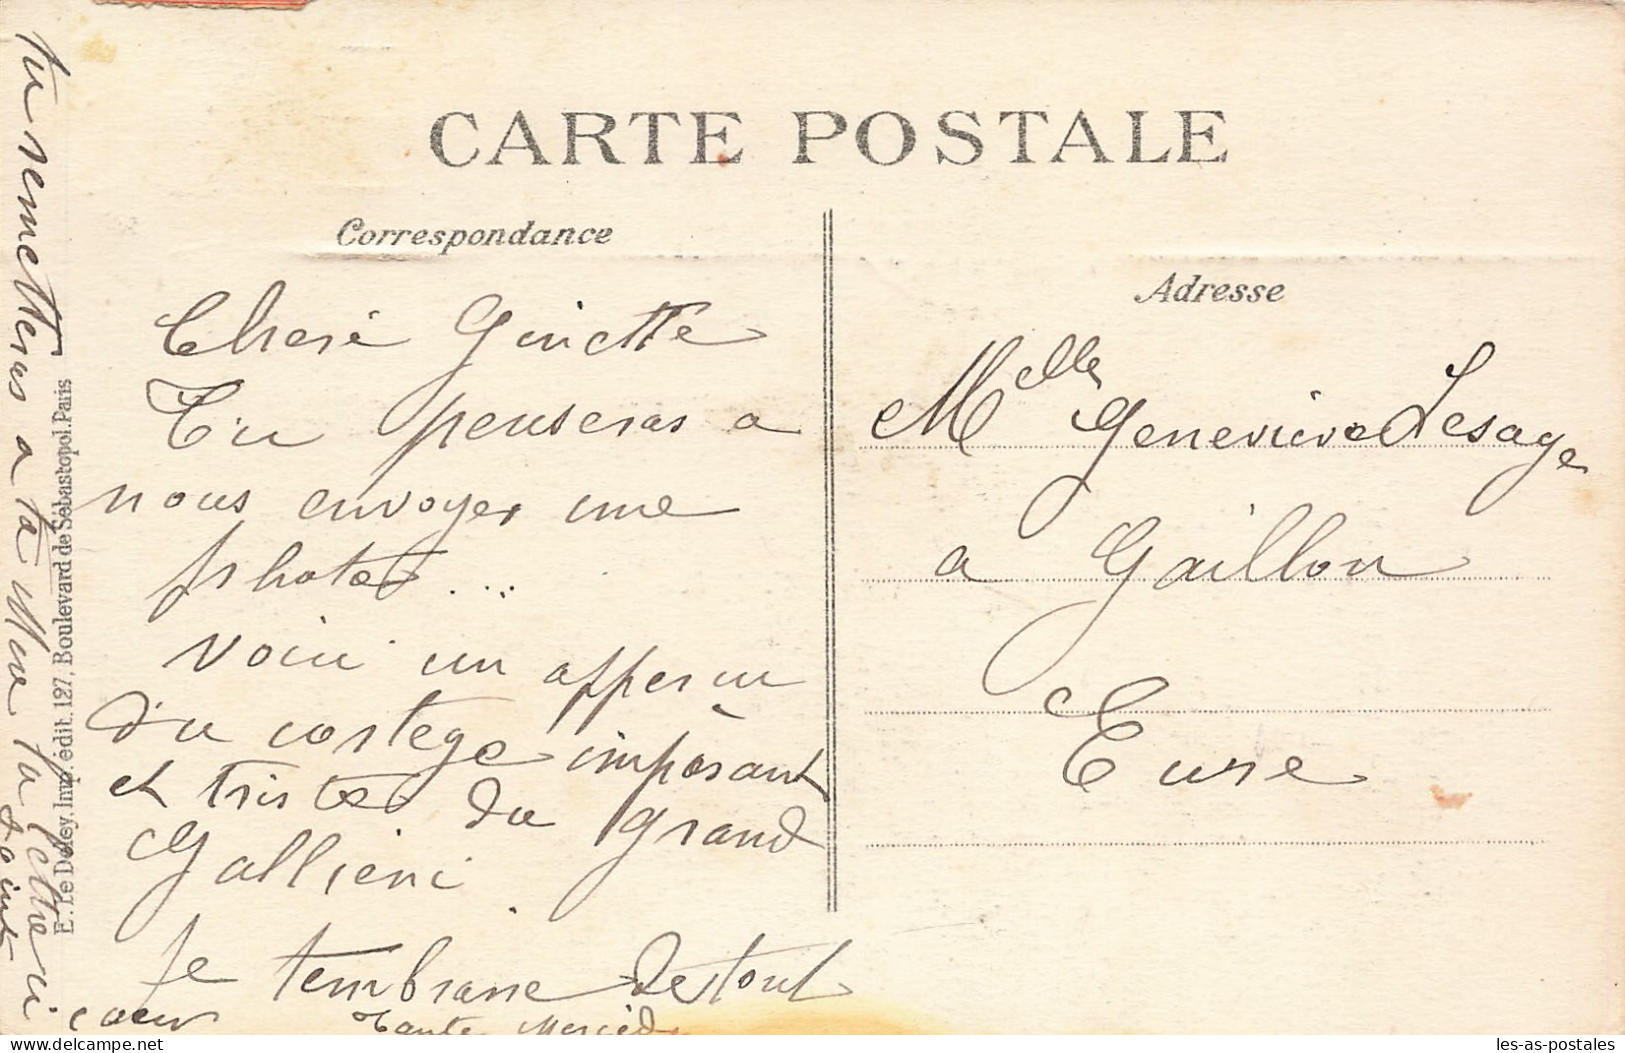 CARTE POSTALE
Correspondance
Adresse
Cheré Ginette
Tu penseras a
nous envoyer une
photo ...
voici un apperçu
du cortege imposant
et triste du grand
Gallieni
Je t'embrasse de tout
cœur Tante Mercédès
Melle Geneviève Lesage
a Gaillon
Eure
tu remetteras a ta Mère la lettre ci
joint
E. Le Deley, Imp. édit. 127, Boulevard de Sébastopol. Paris
delcampe.net
les-as-postales